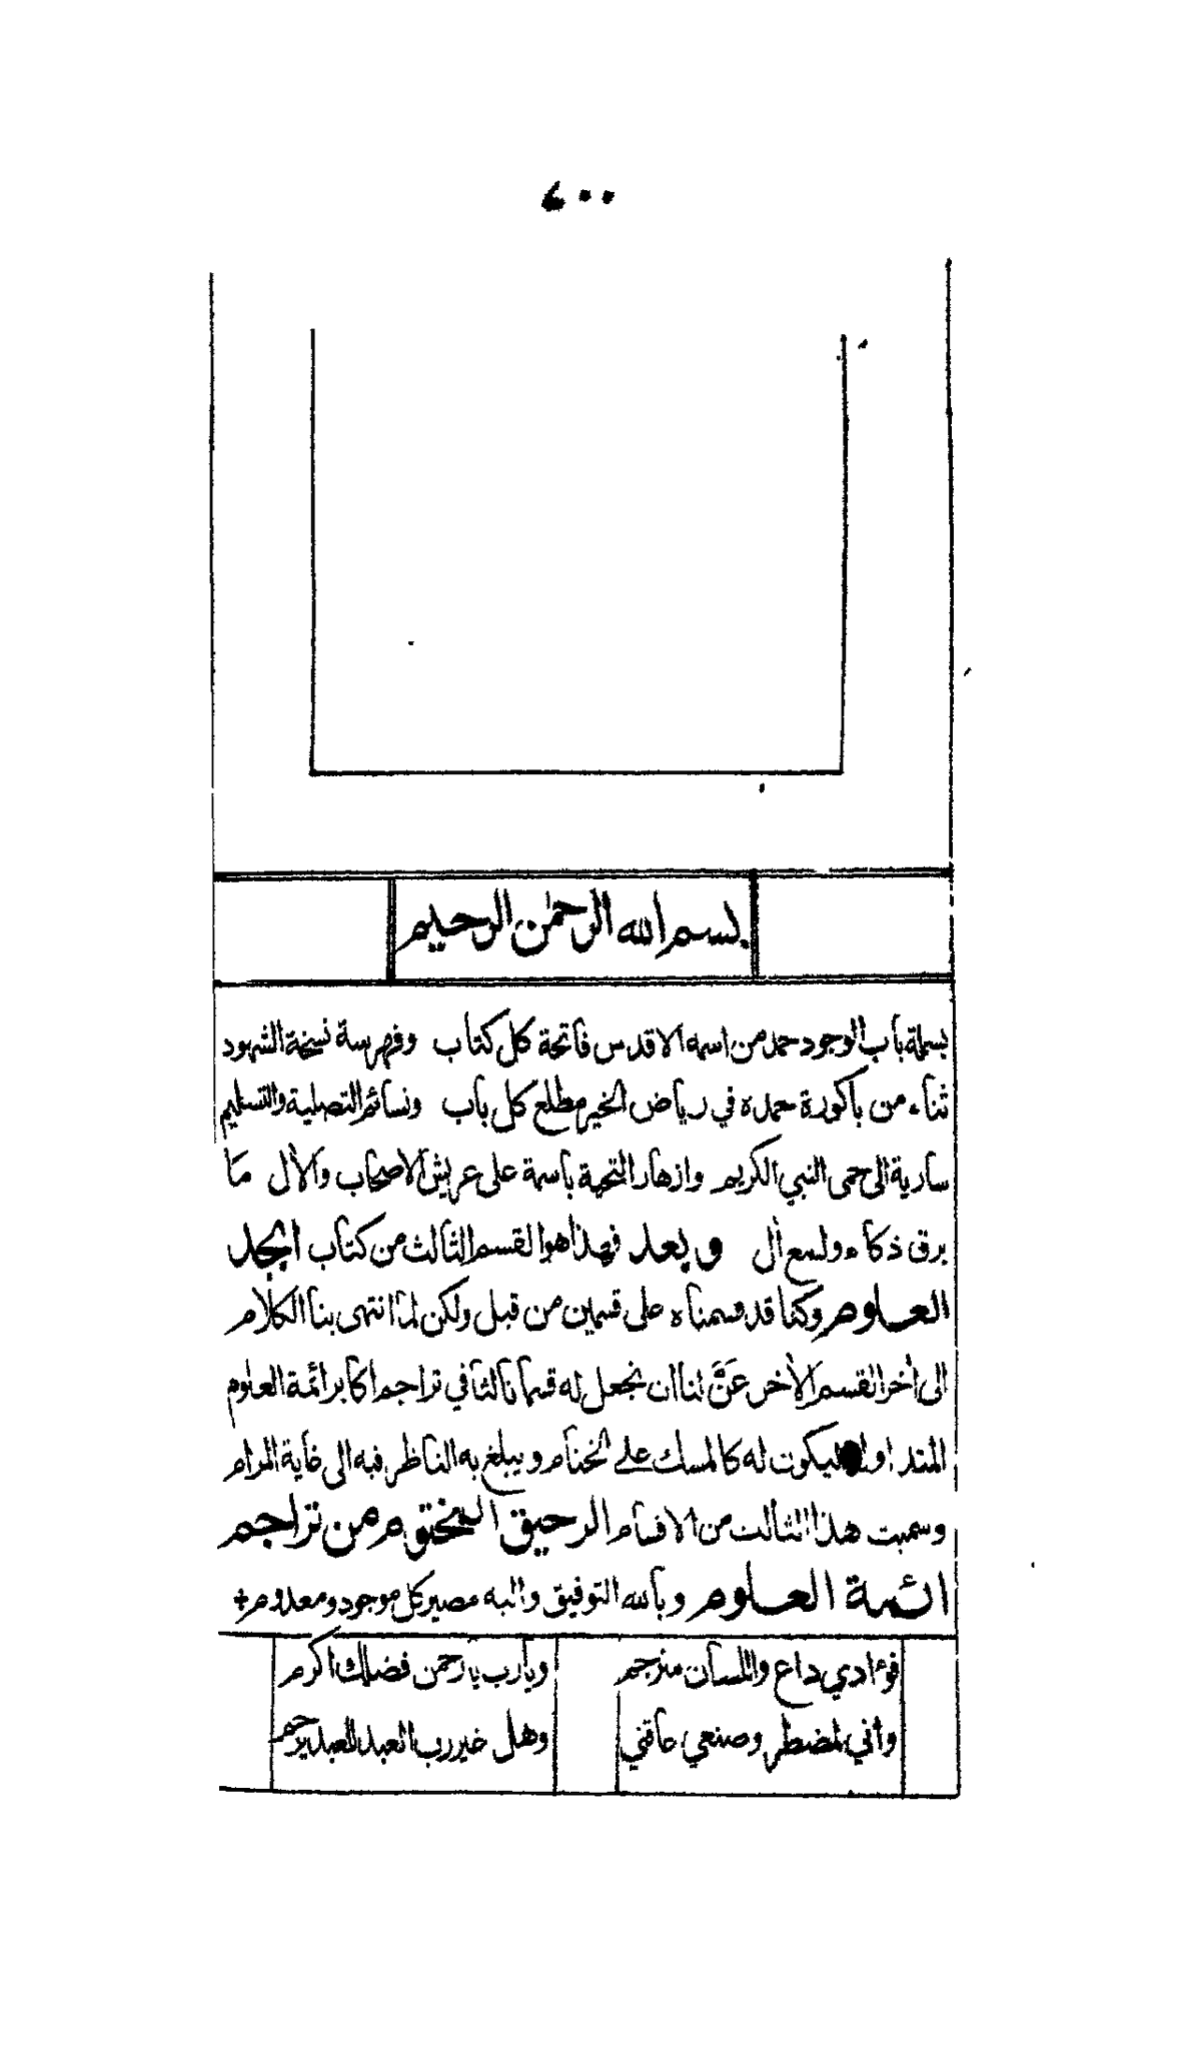 ٤٠٠
بسم الله الرحمن الرحيم
بسملة باب الوجود حمد من اسمه الاقدس فاتحة كل كتاب وفهرسة نسخة الشهود
ثناء من باكورة حمده في رياض الخير مطلع كل باب ونسائم التصلية والتسليم
سارية الى حمى النبي الكريم وازهار التحية باسمة على عريش الاصحاب والآل ما
برق ذكاء ولمع آل وبعد فهذا هو القسم الثالث من كتاب ابجد
العلوم وكنا قد وسمناه على قسمين من قبل ولكن لما انتهى بنا الكلام
الى آخر القسم الآخر عنّ لنا ان نجعل له قسما ثالثا في تراجم اكابر ائمة العلوم
المتداولة ليكون له كالمسك على الختام ويبلغ به الناظر فيه الى غاية المرام
وسميت هذا الثالث من الاقسام الرحيق المختوم من تراجم
ائمة العلوم وبالله التوفيق واليه مصير كل موجود ومعدوم +
فؤادي داع واللسان مترجم ويارب يارحمن فضلك اكرم
وأني لمضطر وصنعي عاقني وهل خير رب العبد للعبد يرحم